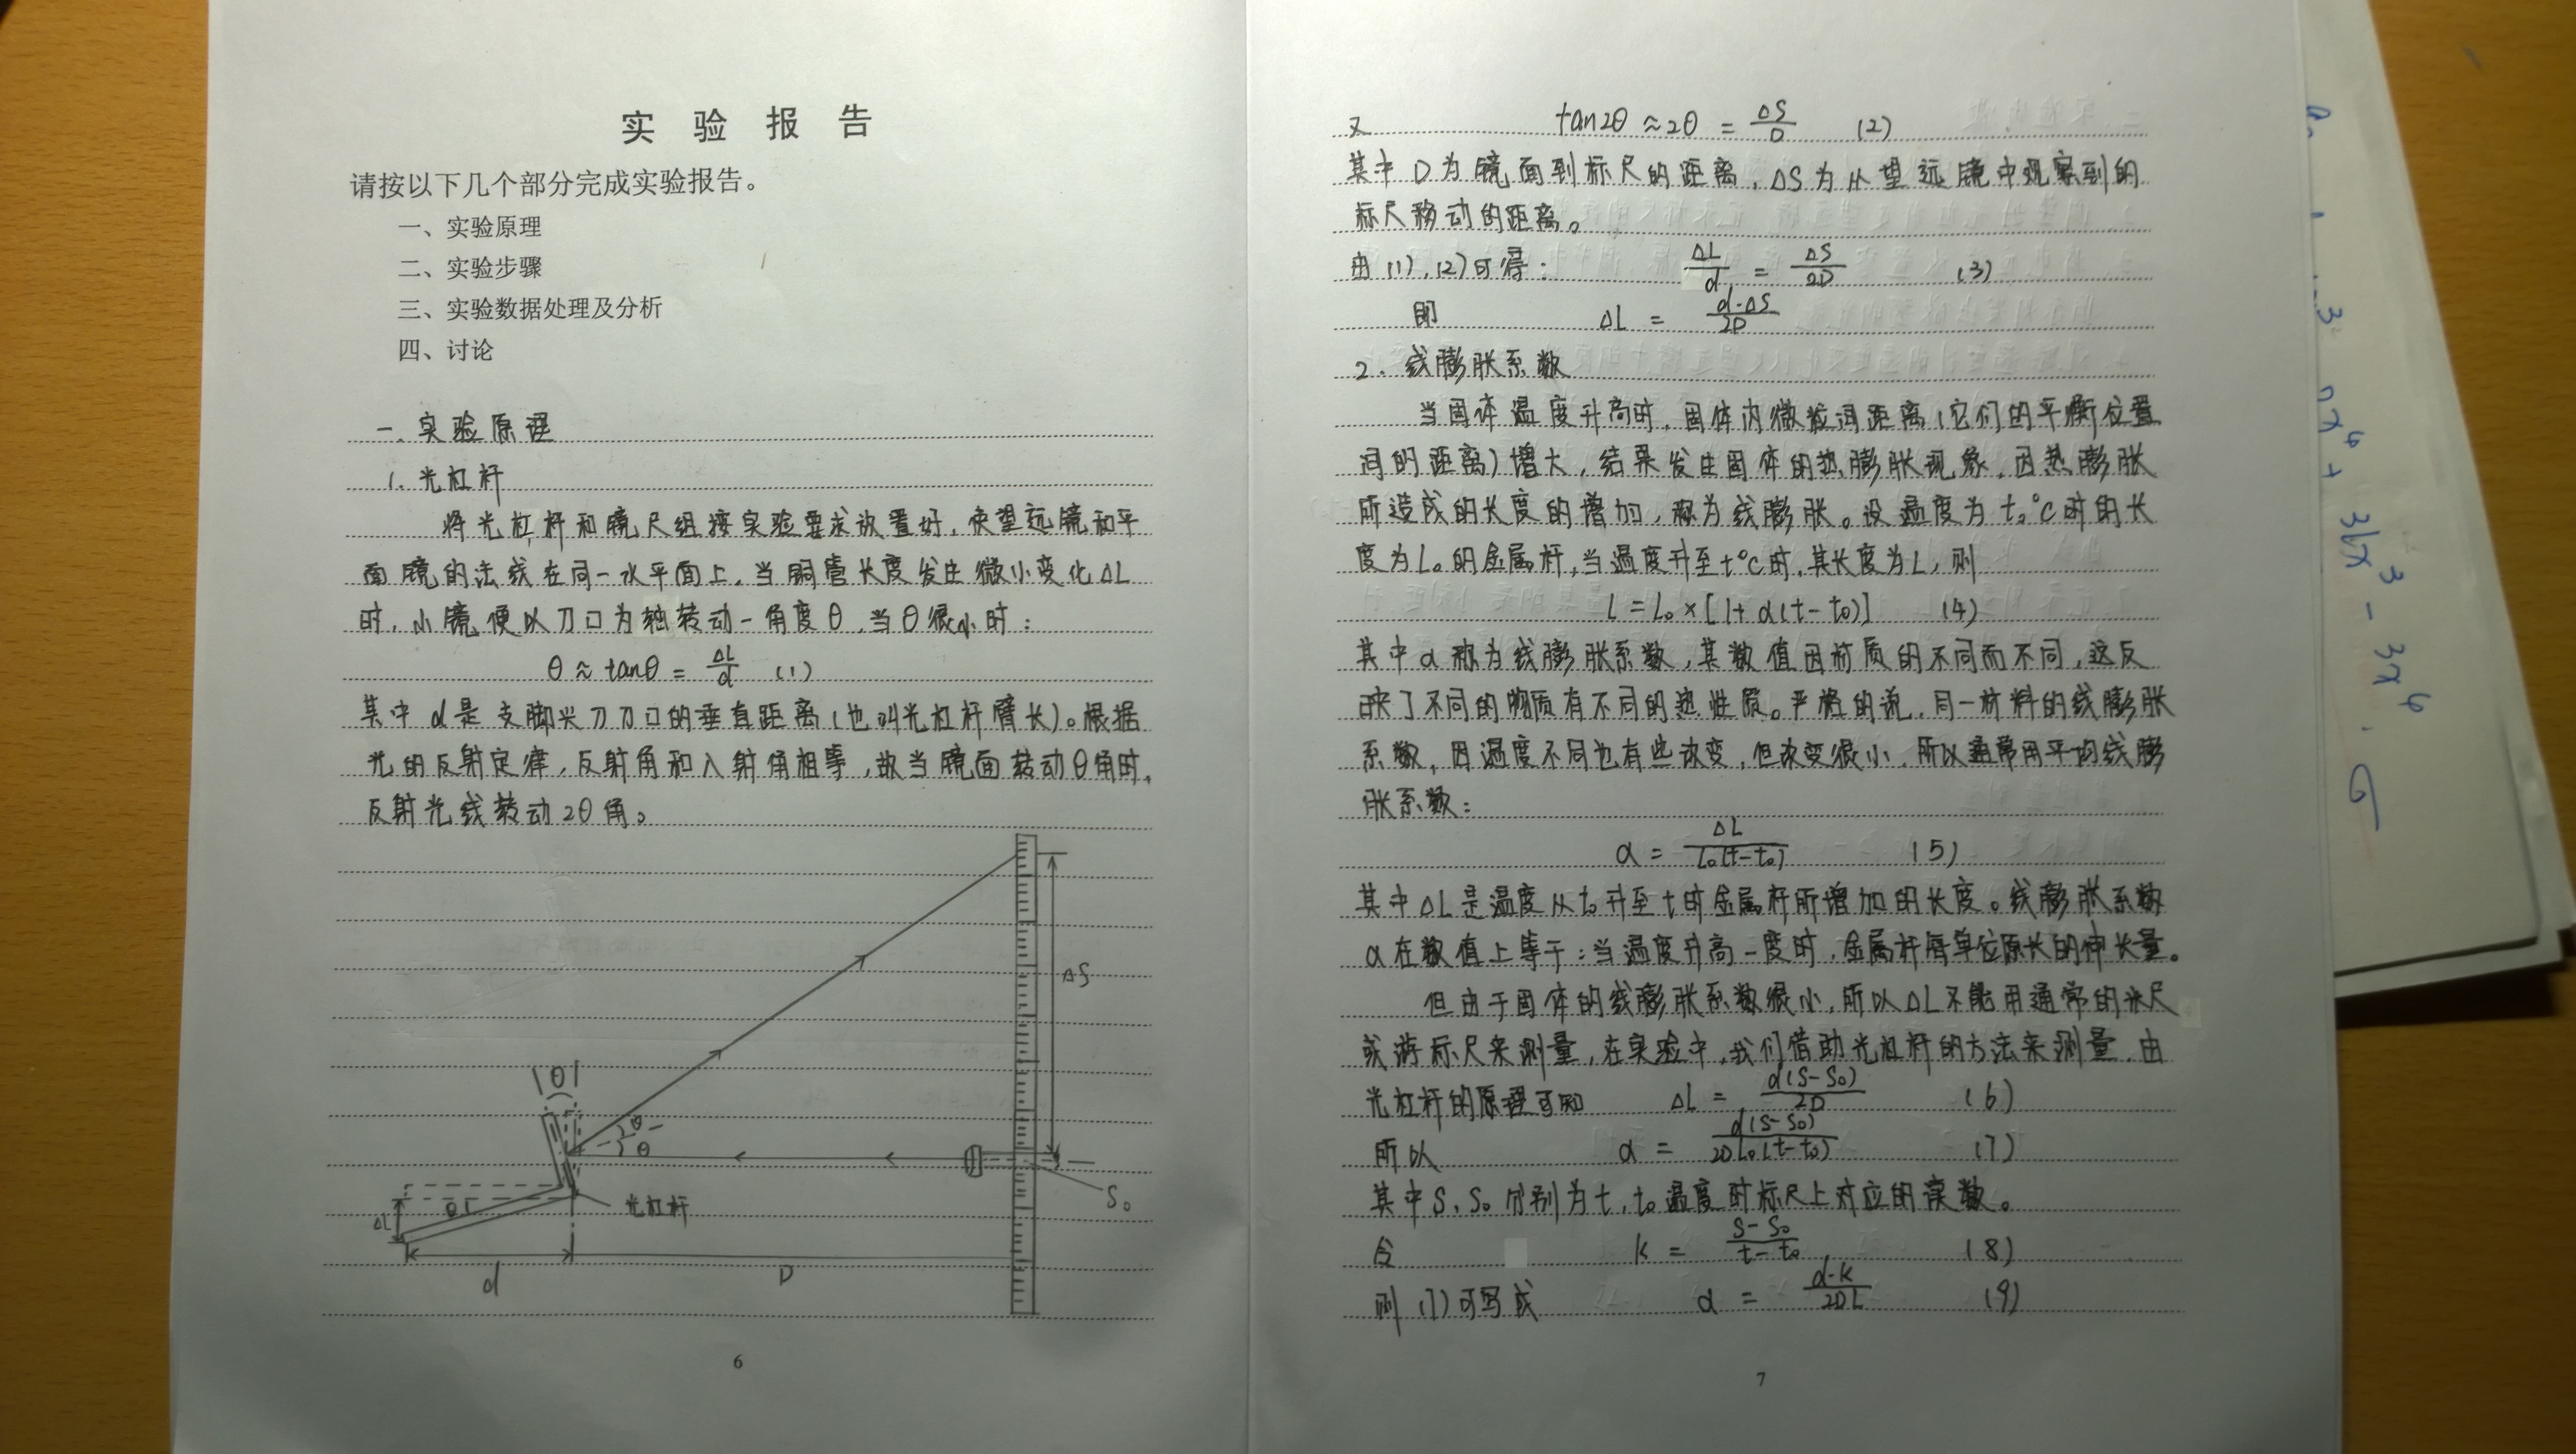 实 验 报 告
请按以下几个部分完成实验报告。
一、实验原理
二、实验步骤
三、实验数据处理及分析
四、讨论
一. 实验原理
1. 光杠杆
将光杠杆和镜尺组按实验要求放置好，使望远镜和平
面镜的法线在同一水平面上。当铜管长度发生微小变化ΔL
时，小镜便以刀口为轴转动一角度θ，当θ很小时：
θ≈tanθ = ΔL/d (1)
其中d是支脚尖刀刀口的垂直距离（也叫光杠杆臂长）。根据
光的反射定律，反射角和入射角相等，故当镜面转动θ角时，
反射光线转动2θ角。
ΔS
θ
θ
θ
S₀
ΔL
θ
光杠杆
d
D
6
又 tan2θ≈2θ = ΔS/D (2)
其中D为镜面到标尺的距离，ΔS为从望远镜中观察到的
标尺移动的距离。
由(1),(2)可得： ΔL/d = ΔS/2D (3)
即 ΔL = d·ΔS/2D
2. 线膨胀系数
当固体温度升高时，固体内微粒间距离（它们的平衡位置
间的距离）增大，结果发生固体的热膨胀现象，因热膨胀
所造成的长度的增加，称为线膨胀。设温度为t₀°C时的长
度为L₀的金属杆，当温度升至t°C时，其长度为L，则
L=L₀×[1+α(t-t₀)] (4)
其中α称为线膨胀系数，其数值因材质的不同而不同，这反
映了不同的物质有不同的热性质。严格的说，同一材料的线膨胀
系数，因温度不同也有些改变，但改变很小，所以通常用平均线膨
胀系数：
α = ΔL/L₀(t-t₀) (5)
其中ΔL是温度从t₀升至t时金属杆所增加的长度。线膨胀系数
α在数值上等于：当温度升高一度时，金属杆每单位原长的伸长量。
但由于固体的线膨胀系数很小，所以ΔL不能用通常的米尺
或游标尺来测量，在实验中，我们借助光杠杆的方法来测量，由
光杠杆的原理可知 ΔL = d(S-S₀)/2D (6)
所以 α = d(S-S₀)/2DL₀(t-t₀) (7)
其中S、S₀分别为t,t₀温度时标尺上对应的读数。
令 k = S-S₀/t-t₀ (8)
则(7)可写成 α = d·k/2DL (9)
7
nx⁶ + 36x³ - 3x⁶